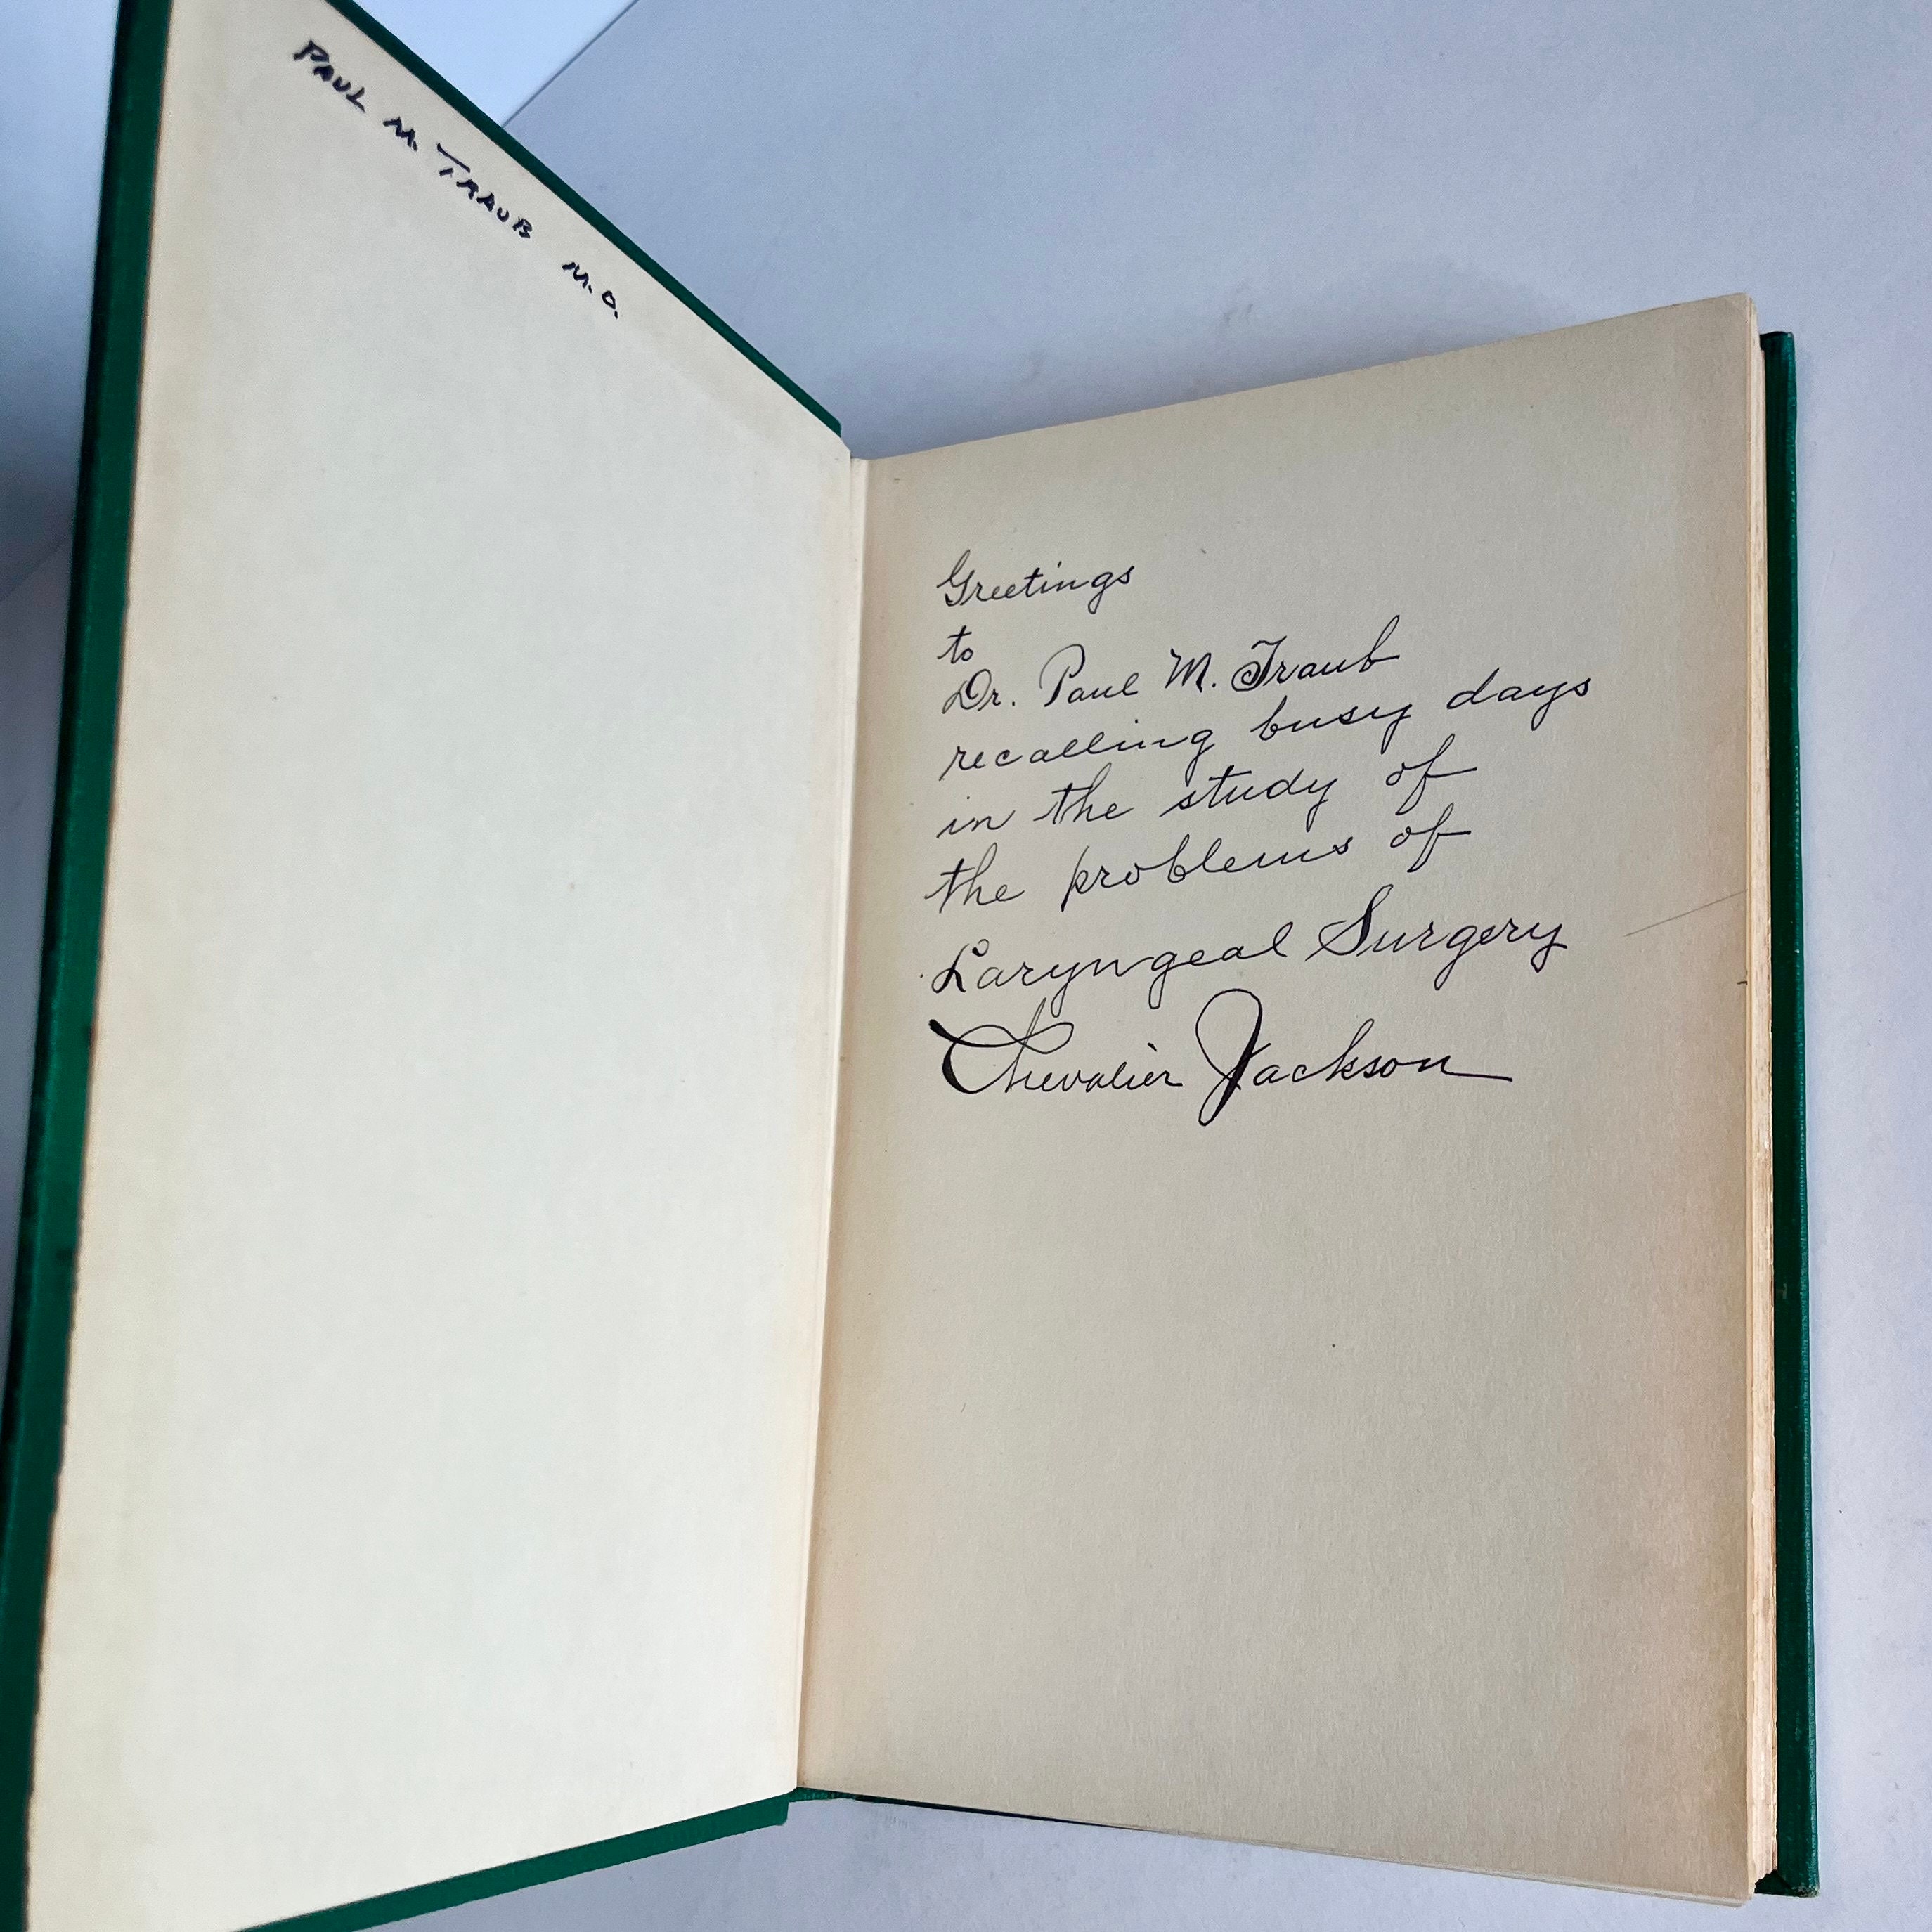 PAUL M. TRAUB M.D.
Greetings
to
Dr. Paul M. Traub
recalling busy days
in the study of
the problems of
Laryngeal Surgery
Chevalier Jackson